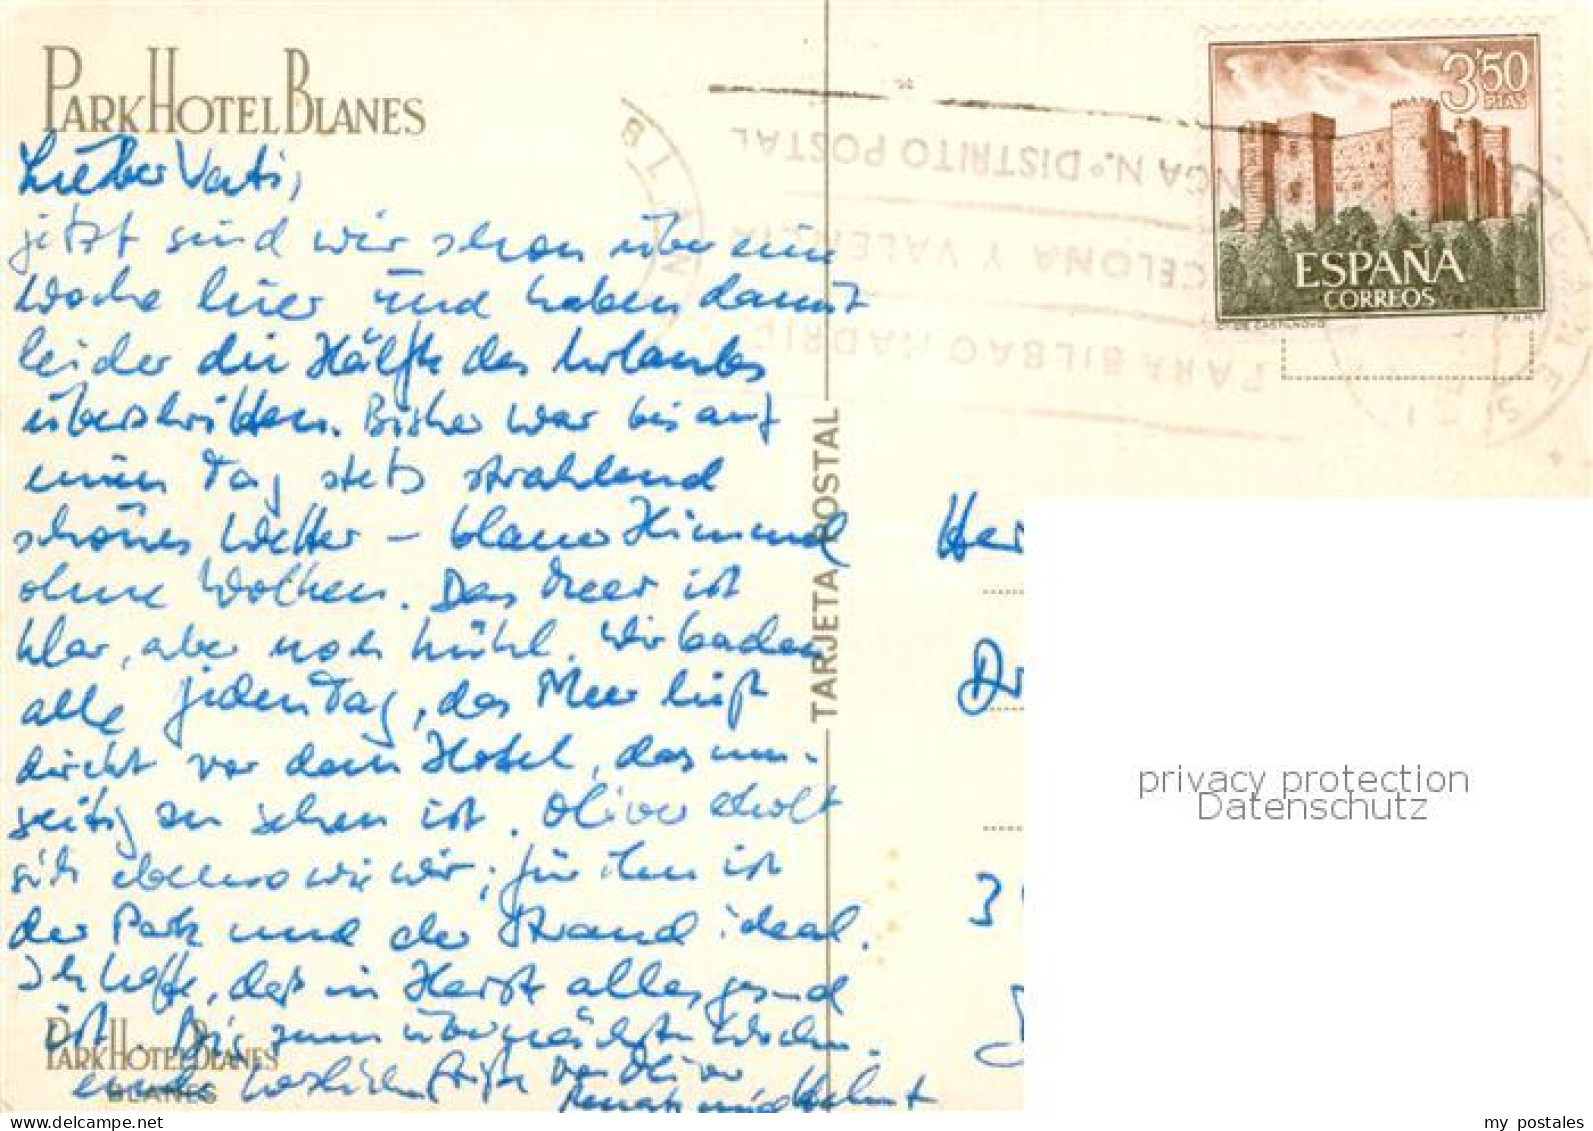 PARK HOTEL BLANES
Lieber Vati,
jetzt sind wir schon über eine
Woche hier und haben damit
leider die Hälfte des Urlaubs
überschritten. Bisher war bis auf
einen Tag stets strahlend
schönes Wetter – blauer Himmel
ohne Wolken. Das Meer ist
klar, aber noch kühl. Wir baden
alle jeden Tag, das Meer liegt
direkt vor dem Hotel, das um-
seitig zu sehen ist. Oliver erholt
sich ebenso wie wir; für ihn ist
der Park und der Strand ideal.
Ich hoffe, daß in Herst alles gesund
ist. Bis zum übernächsten Woche.
PARK HOTEL BLANES
BLANES
herzliche Grüße von Oliver
Renate und Helmut
TARJETA POSTAL
Nº DISTRITO POSTAL
CELONA Y VALENCIA
PARA BILBAO MADRID
3'50
PTAS
ESPAÑA
CORREOS
Cº DE CASTILNOVO
F.N.M.T
Her
Dr
3
privacy protection
Datenschutz
my postales